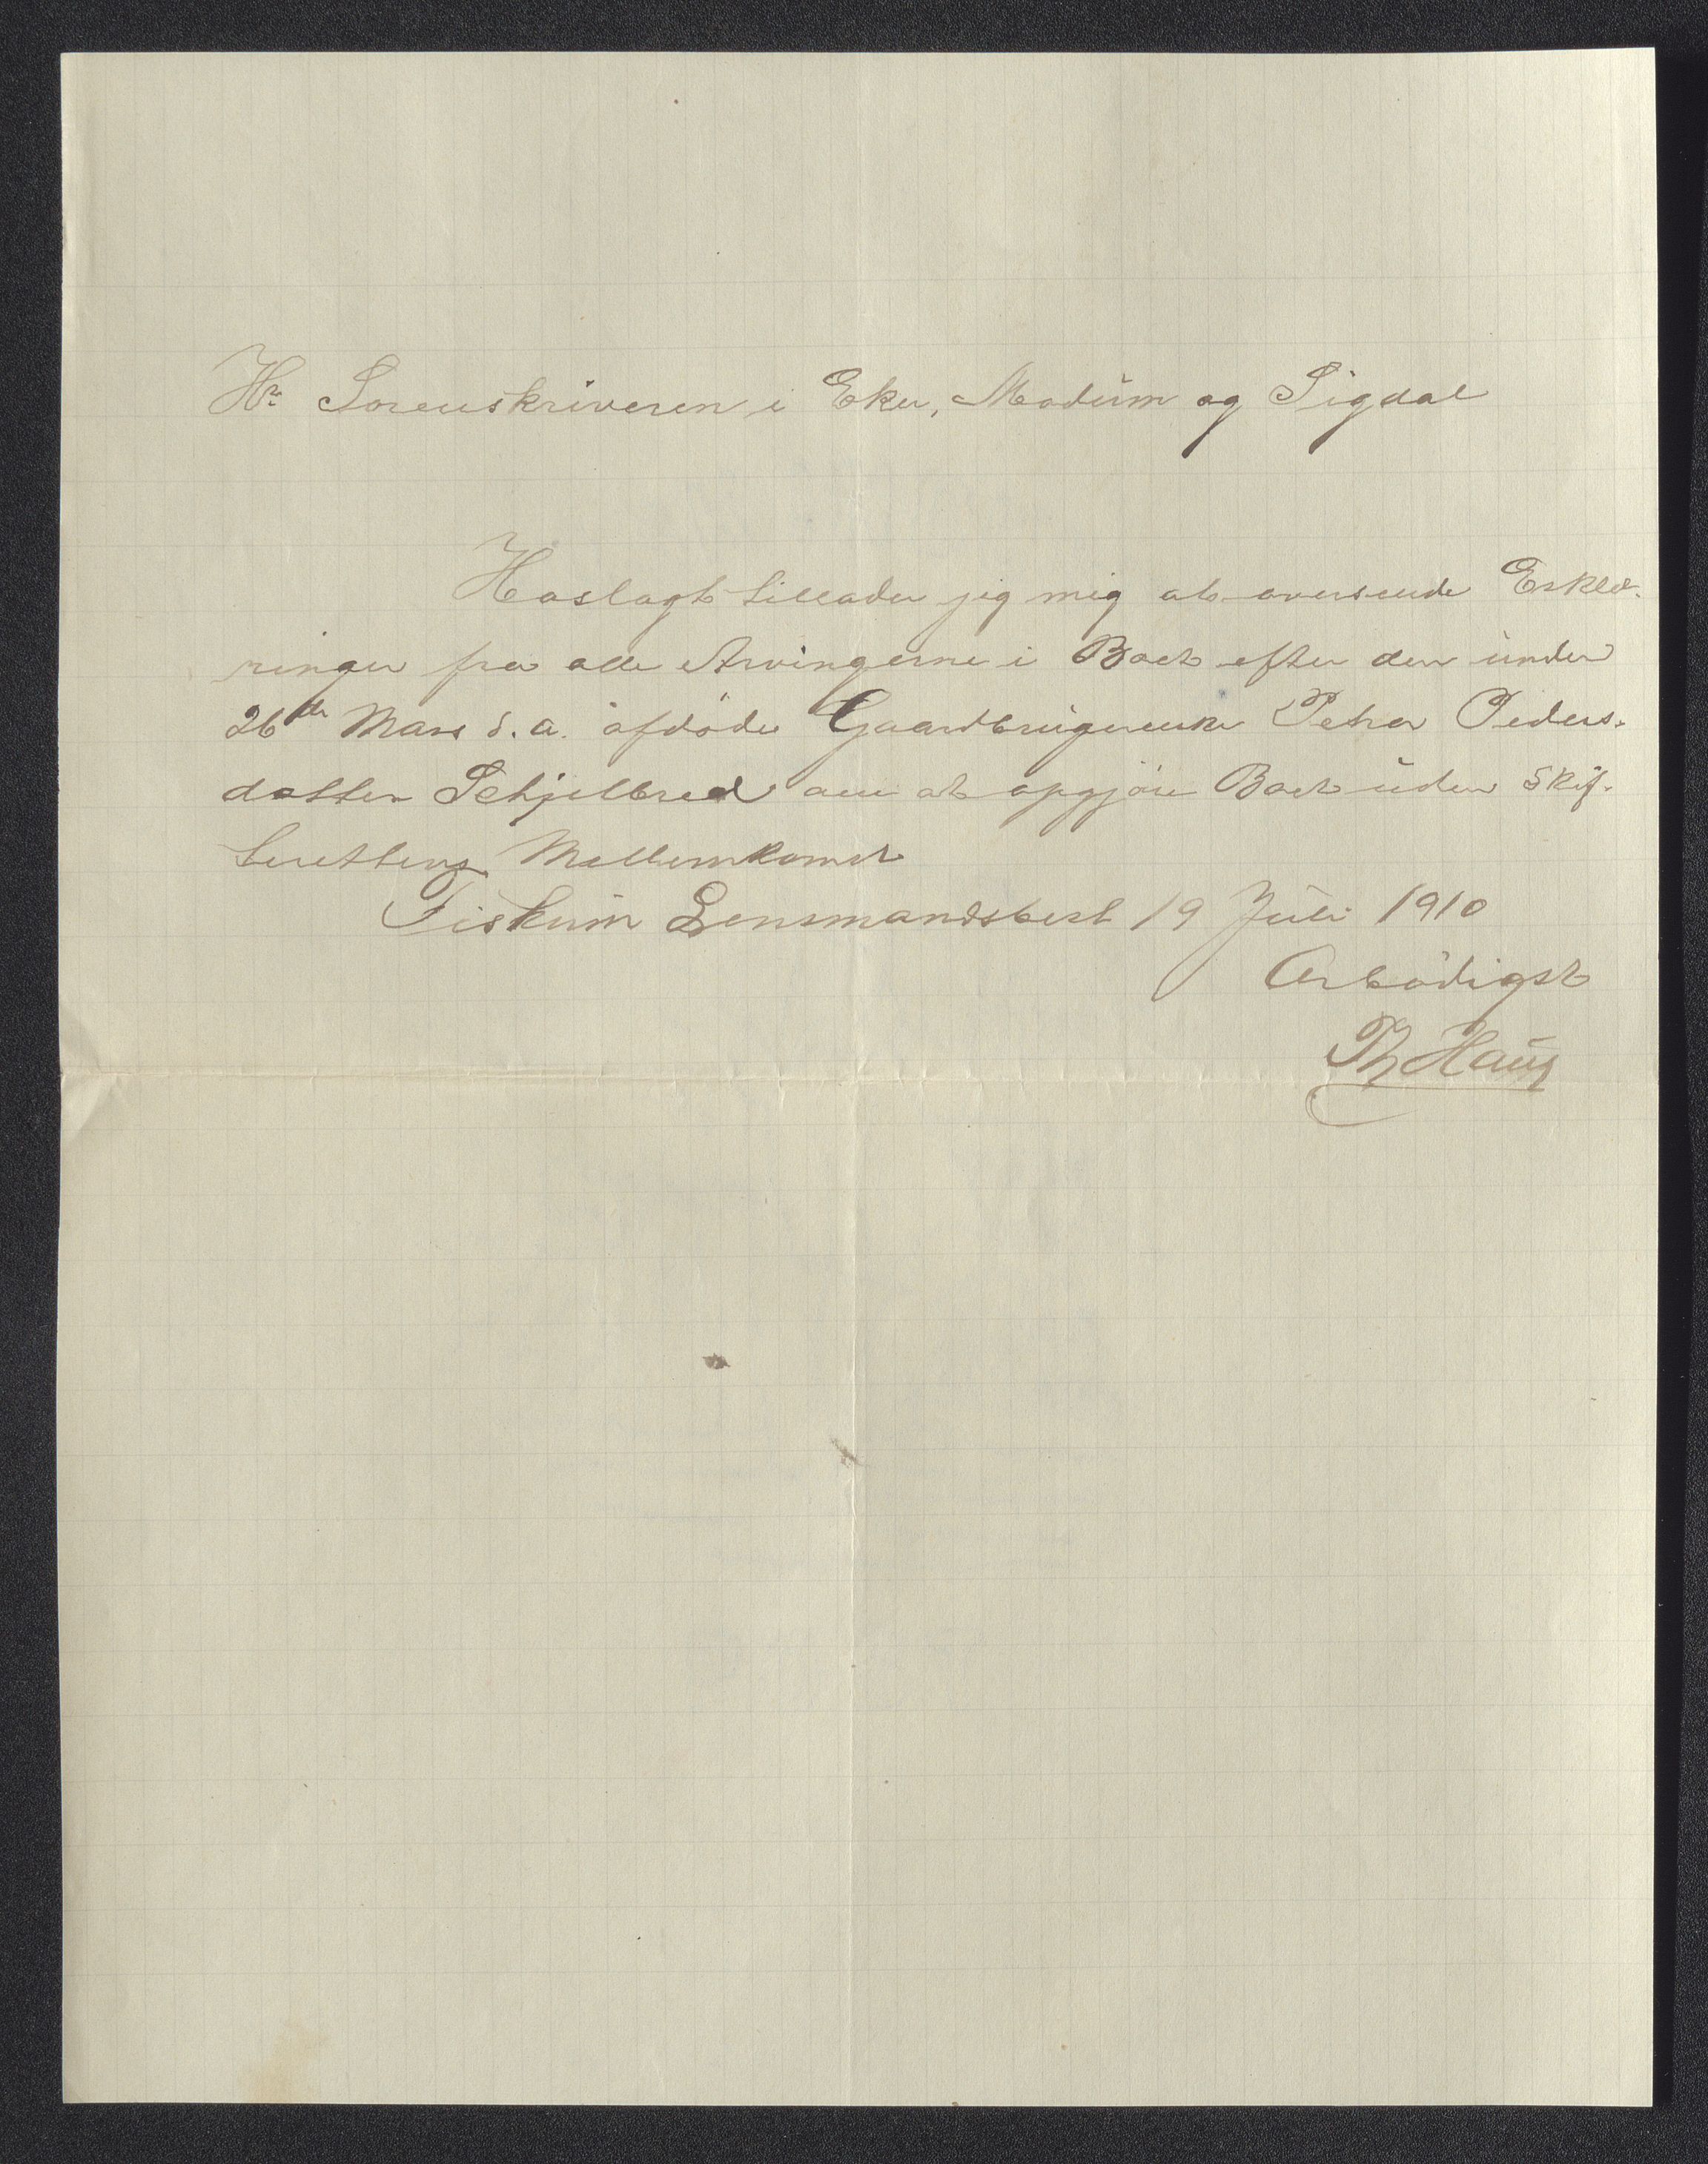 Hr Sorenskriveren i Eker, Modum og Sigdal
Hoslagt tillader jeg mig at oversende Erklæ-
ringer fra alle Arvingerne i Boet efter den under
26de Mars d. a. afdøde Gaardbrugerenke Petra Peders-
datter Schjelbred om at opgjøre Boet uden Skif-
terettens Mellemkomst
Fiskum Lensmandsbest 19 Juli 1910
Ærbødigst
Th Haug